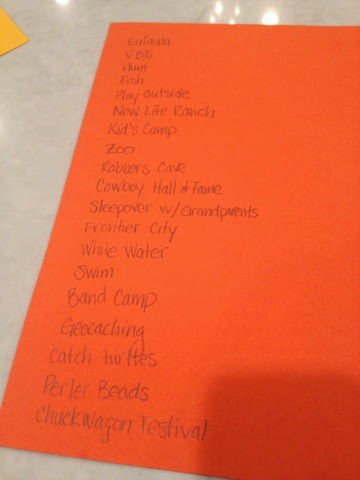 Eufaula
VBS
Hunt
Fish
Play Outside
New Life Ranch
Kid's Camp
Zoo
Robbers Cave
Cowboy Hall of Fame
Sleepover w/Grandparents
Frontier City
White Water
Swim
Band Camp
Geocaching
Catch turtles
Perler Beads
Chuckwagon Festival